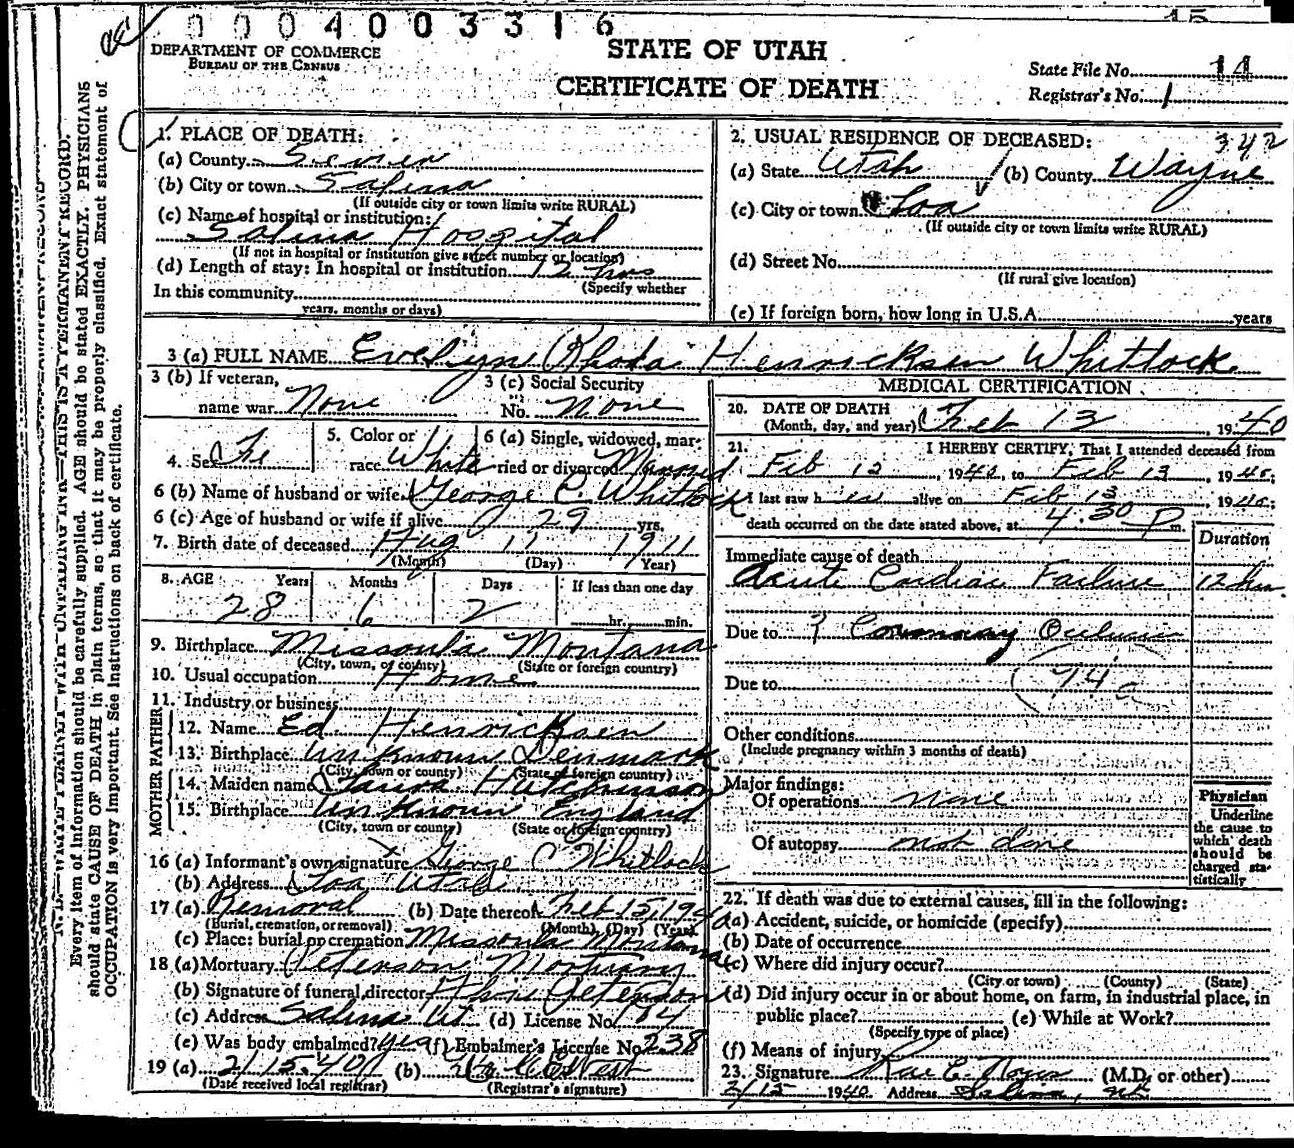 0 0 0 4 0 0 3 3 1 6
DEPARTMENT OF COMMERCE
BUREAU OF THE CENSUS
STATE OF UTAH
CERTIFICATE OF DEATH
State File No. 14
Registrar's No. 1
1. PLACE OF DEATH:
(a) County Sevier
(b) City or town Salina
(If outside city or town limits write RURAL)
(c) Name of hospital or institution:
Salina Hospital
(If not in hospital or institution give street number or location)
(d) Length of stay: In hospital or institution 12 hrs
(Specify whether
In this community
years, months or days)
2. USUAL RESIDENCE OF DECEASED: 342
(a) State Utah (b) County Wayne
(c) City or town Loa
(If outside city or town limits write RURAL)
(d) Street No.
(If rural give location)
(e) If foreign born, how long in U.S.A. years
3 (a) FULL NAME Evelyne Rhoda Henricksen Whitlock
3 (b) If veteran,
name war None
3 (c) Social Security
No. None
4. Sex Fe
5. Color or
race White
6 (a) Single, widowed, mar-
ried or divorced Married
6 (b) Name of husband or wife George C. Whitlock
6 (c) Age of husband or wife if alive 29 yrs.
7. Birth date of deceased Aug 11 1911
(Month) (Day) Year)
8. AGE Years Months Days If less than one day
28 6 2 hr. min.
9. Birthplace Missoula Montana
(City, town, or county) (State or foreign country)
10. Usual occupation Home
11. Industry or business
FATHER
12. Name Ed Henricksen
13. Birthplace unknown Denmark
(City, town or county) (State or foreign country)
MOTHER
14. Maiden name Hutchinson
15. Birthplace unknown England
(City, town or county) (State or foreign country)
16 (a) Informant's own signature George C Whitlock
(b) Address Loa Utah
17 (a) Removal (b) Date thereof Feb 15, 1940
(Burial, cremation, or removal) (Month) (Day) (Year)
(c) Place: burial or cremation Missoula Montana
18 (a) Mortuary Peterson Mortuary
(b) Signature of funeral director Peterson
(c) Address Salina Ut. (d) License No. 184
(e) Was body embalmed? yes (f) Embalmer's License No. 238
19 (a) 2/15.40 (b) West
(Date received local registrar) (Registrar's signature)
MEDICAL CERTIFICATION
20. DATE OF DEATH
(Month, day, and year) Feb 13 1940
21. I HEREBY CERTIFY, That I attended deceased from
Feb 12, 1940, to Feb 13, 1940;
I last saw her alive on Feb 13 1940;
death occurred on the date stated above, at 4:30 P m.
Duration
Immediate cause of death
Acute Cardiac Failure 12 hrs.
Due to ? Coronary
Due to
(94a
Other conditions
(Include pregnancy within 3 months of death)
Major findings:
Of operations none
Of autopsy not done
Physician
Underline
the cause to
which death
should be
charged sta-
tistically
22. If death was due to external causes, fill in the following:
(a) Accident, suicide, or homicide (specify)
(b) Date of occurrence
(c) Where did injury occur?
(City or town) (County) (State)
(d) Did injury occur in or about home, on farm, in industrial place, in
public place? (e) While at Work?
(Specify type of place)
(f) Means of injury
23. Signature Rae E. Noyes (M.D. or other)
2/15 1940 Address Salina, Ut.
N. B.—WRITE PLAINLY WITH UNFADING INK—THIS IS A PERMANENT RECORD.
Every item of information should be carefully supplied. AGE should be stated EXACTLY. PHYSICIANS
should state CAUSE OF DEATH in plain terms, so that it may be properly classified. Exact statement of
OCCUPATION is very important. See instructions on back of certificate.